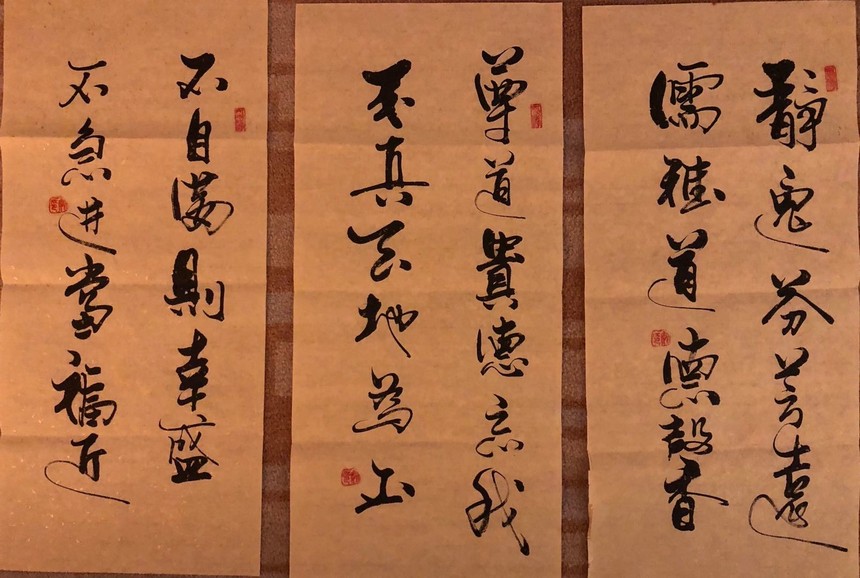 靜逸芬芳遠
儒雅道德馨
尊道貴德忘我
真天地為上
不自滿則幸盛
不急進當福近